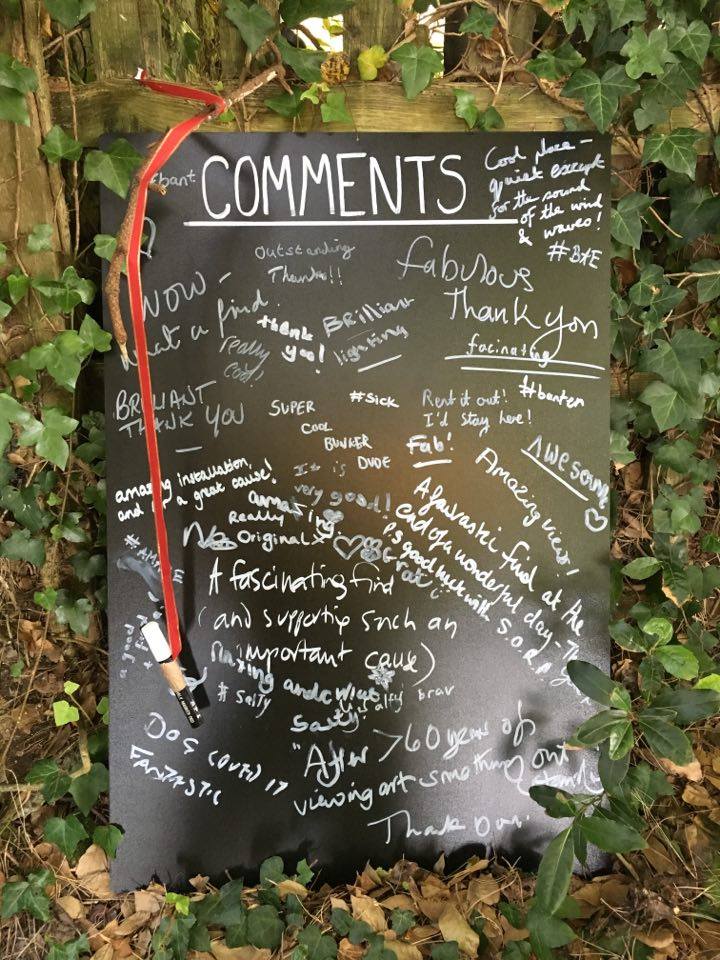 #bant
COMMENTS
Cool place –
quiet except
for the sound
of the wind
& waves!
#BAE
Outstanding
Thanks!!
fabulous
Thank you
WOW –
what a find.
thank
you!
really
cool,
Brilliant
lighting
facinating
#banter
BRILIANT
THANK YOU
SUPER
COOL
BUNKER
#sick
Rent it out!
I'd stay here!
Fab!
It is DUDE
AWESOME
very good!
amazing installation,
and for a great cause!
amazing
Really
Original
Amazing view!
A fantastic find at the
end of a wonderful day –
P.S good luck with S.O.R.P.
Great
A fascinating find
(and supporting such an
important cause)
a good
Amazing and what
#Salty
Salty!
salty brav
DOG LOVED IT
FANTASTIC
"After >60 years of
viewing art something out
Thank You.